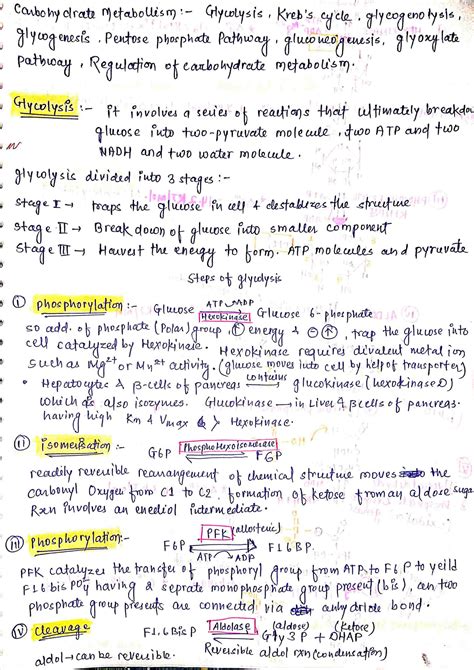 Carbohydrate Metabollism :- Glycolysis, Kreb's cycle, glycogenolysis,
glycogenesis, Pentose phosphate Pathway, gluconeogenesis, glyoxylate
Pathway, Regulation of carbohydrate metabolism.
Glycolysis :- it involves a series of reactions that ultimately breakdown
glucose into two-pyruvate molecule, two ATP and two
NADH and two water molecule.
glycolysis divided into 3 stages :-
Stage I → traps the glucose in cell & destablizes the structure
Stage II → Breakdown of glucose into smaller component
Stage III → Harvest the energy to form ATP molecules and pyruvate
Steps of glycolysis
(i) phosphorylation :- Glucose ATP→ADP Hexokinase Glucose 6-phosphate
so add. of phosphate (Polar) group, ↑ energy & ⊖ ↑, trap the glucose into
cell catalyzed by Hexokinase. Hexokinase requires divalent metal ion
such as Mg2+ or Mn2+ activity. (glucose moves into cell by help of transporters)
• Hepatocytes & β-cells of pancreas contains glucokinase (hexokinase D)
which is also isozymes. Glucokinase → in Liver & β cells of pancreas.
having high Km & Vmax > Hexokinase.
(ii) isomerisation :- G6P Phosphohexoisomerase F6P
readily reversible rearrangement of chemical structure moves the
carbonyl Oxygen from C1 to C2 formation of ketose from an aldose sugar
Rxn involves an enediol intermediate.
(iii) Phosphorylation:- F6P PFK (allosteric) ATP → ADP F16BP.
PFK catalyzes the transfer of phosphoryl group from ATP to F6P to yeild
F16 bis PO4 having 2 seprate monophosphate group present (bis), can two
phosphate group presents are connected via anhydride bond.
(iv) cleavage F1.6BisP Aldolase (aldose) Gly3P + (ketose) DHAP
aldol → can be reversible. Reversible aldol rxn (condensation)